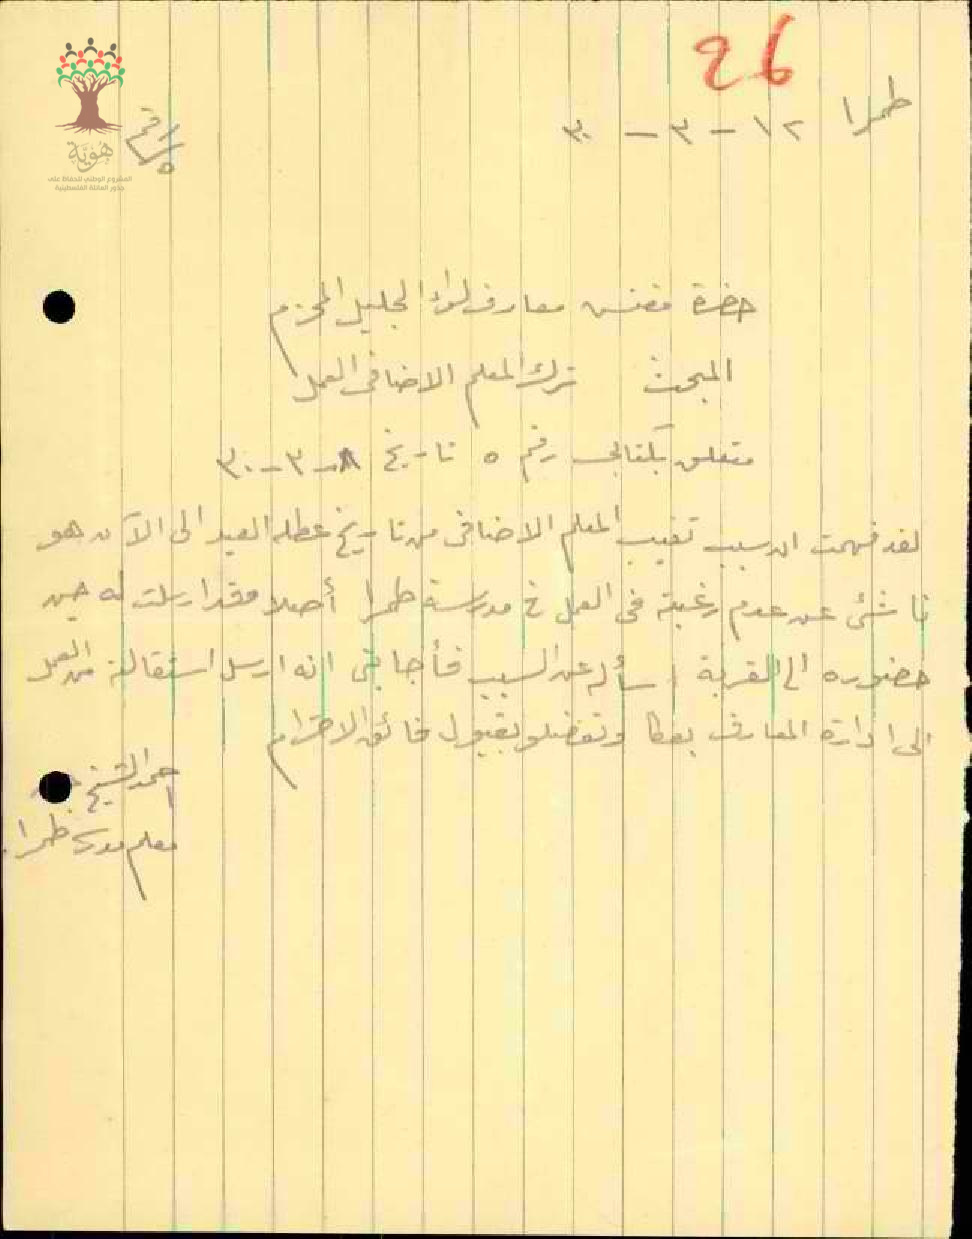 26
طمرا ١٢ - ٣ - ٣٠
رقم ٥
هوية
المشروع الوطني للحفاظ على
جذور العائلة الفلسطينية
حضرة مفتش معارف لواء الجليل المحترم
المبحث ترك المعلم الاضافى العمل
متعلق بكتابى رقم ٥ تاريخ ٨-٣-٣٠
لقد فهمت ان سبب تغيب المعلم الاضافى من تاريخ عطلة العيد الى الآن هو
ناشئ عن عدم رغبته فى العمل فى مدرسة طمرا أصلا فقد ارسلت له حين
حضوره الى القرية اسأله عن السبب فأجابنى انه ارسل استقالته من العمل
الى ادارة المعارف بعكا وتفضلو بقبول فائق الاحترام
احمد الشيخ
معلم مدرسة طمرا